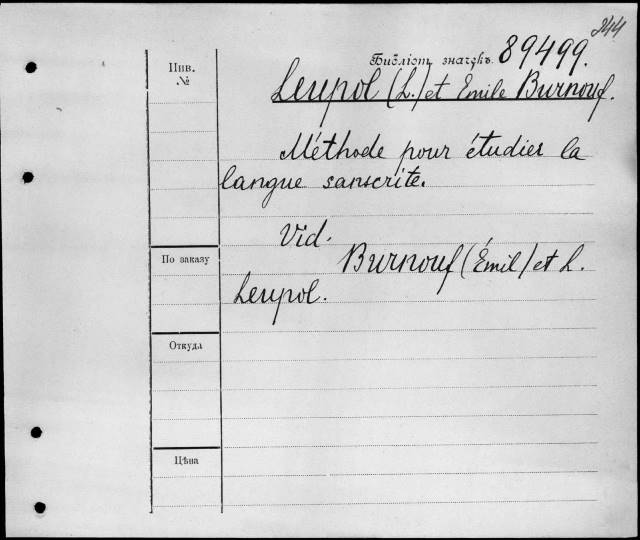 244
Библіот. значукъ 89499.
Инв.
№
Leupol (L.) et Emile Burnouf.
Méthode pour étudier la
langue sanscrite.
Vid.
Burnouf (Émil) et L.
Leupol.
По заказу
Откуда
Цѣна